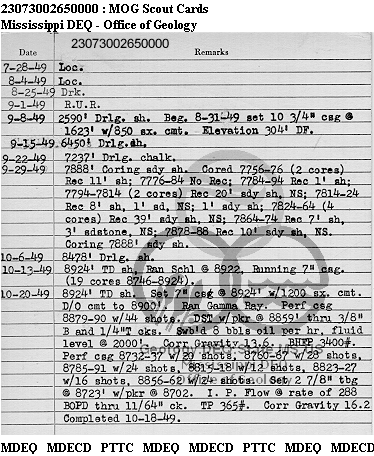 23073002650000 : MOG Scout Cards
Mississippi DEQ - Office of Geology
23073002650000
Date Remarks
7-28-49 Loc.
8-4-49 Loc.
8-25-49 Drk.
9-1-49 R.U.R.
9-8-49 2590' Drlg. sh. Beg. 8-31-49 set 10 3/4" csg @
1623' w/850 sx. cmt. Elevation 304' DF.
9-15-49 6450' Drlg. sh.
9-22-49 7237' Drlg. chalk.
9-29-49 7888' Coring sdy sh. Cored 7756-76 (2 cores)
Rec 11' sh; 7776-84 No Rec; 7784-94 Rec 1' sh;
7794-7814 (2 cores) Rec 20' sdy sh, NS; 7814-24
Rec 8' sh, 1' sd, NS; 1' sdy sh; 7824-64 (4
cores) Rec 39' sdy sh, NS; 7864-74 Rec 7' sh,
3' sdstone, NS; 7878-88 Rec 10' sdy sh, NS.
Coring 7888' sdy sh.
10-6-49 8478' Drlg. sh.
10-13-49 8924' TD sh, Ran Schl @ 8922. Running 7" csg.
(19 cores 8746-8924).
10-20-49 8924' TD sh. Set 7" csg @ 8924' w/1200 sx. cmt.
D/O cmt to 8900'. Ran Gamma Ray. Perf csg
8879-90 w/44 shots. DST w/pkr @ 8859' thru 3/8"
B and 1/4"T cks. Swb'd 8 bbls oil per hr, fluid
level @ 2000'. Corr Gravity 13.6. BHFP 3400#.
Perf csg 8732-37 w/20 shots, 8760-67 w/28 shots,
8785-91 w/24 shots, 8815-18 w/12 shots, 8823-27
w/16 shots, 8856-62 w/24 shots. Set 2 7/8" tbg
@ 8723' w/pkr @ 8702. I. P. Flow @ rate of 288
BOPD thru 11/64" ck. TP 365#. Corr Gravity 16.2
Completed 10-18-49.
MDEQ MDECD PTTC MDEQ MDECD PTTC MDEQ MDECD